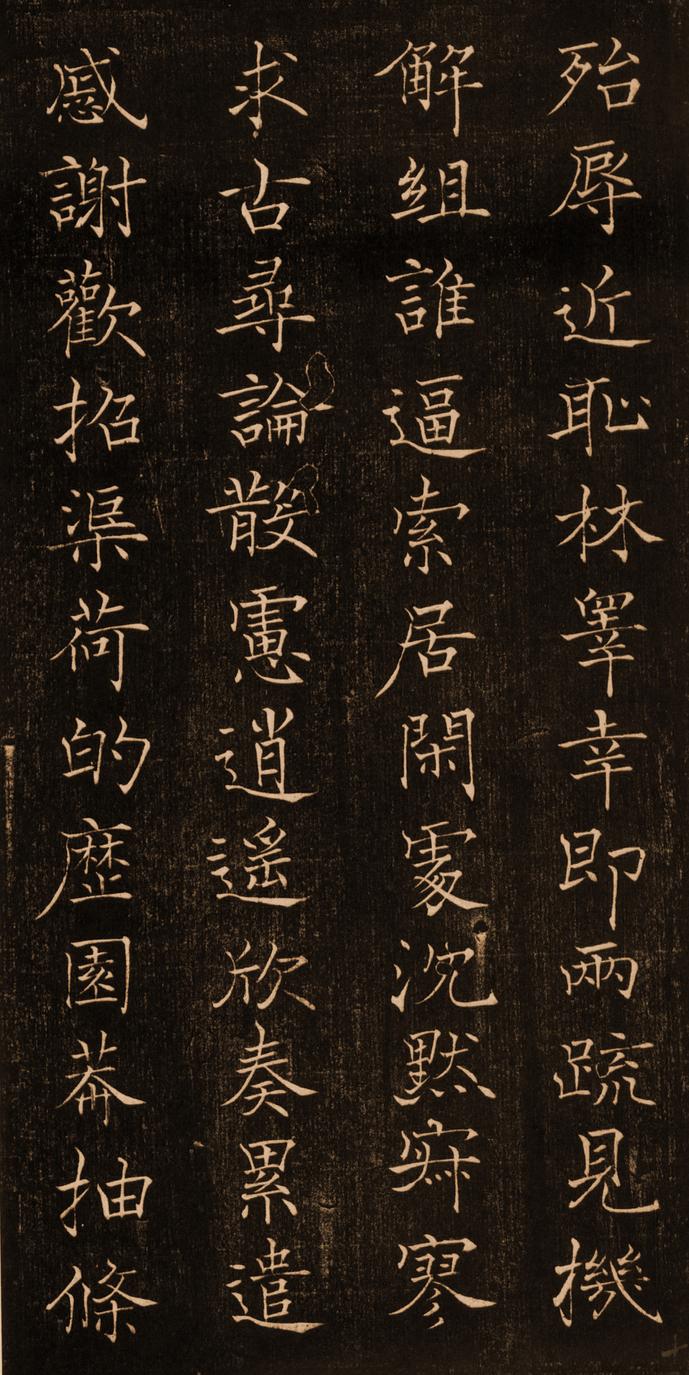 殆辱近恥林睾幸即兩疏見機
解組誰逼索居閑處沈默寂寥
求古尋論散慮逍遙欣奏累遣
慼謝歡招渠荷的歷園莽抽條